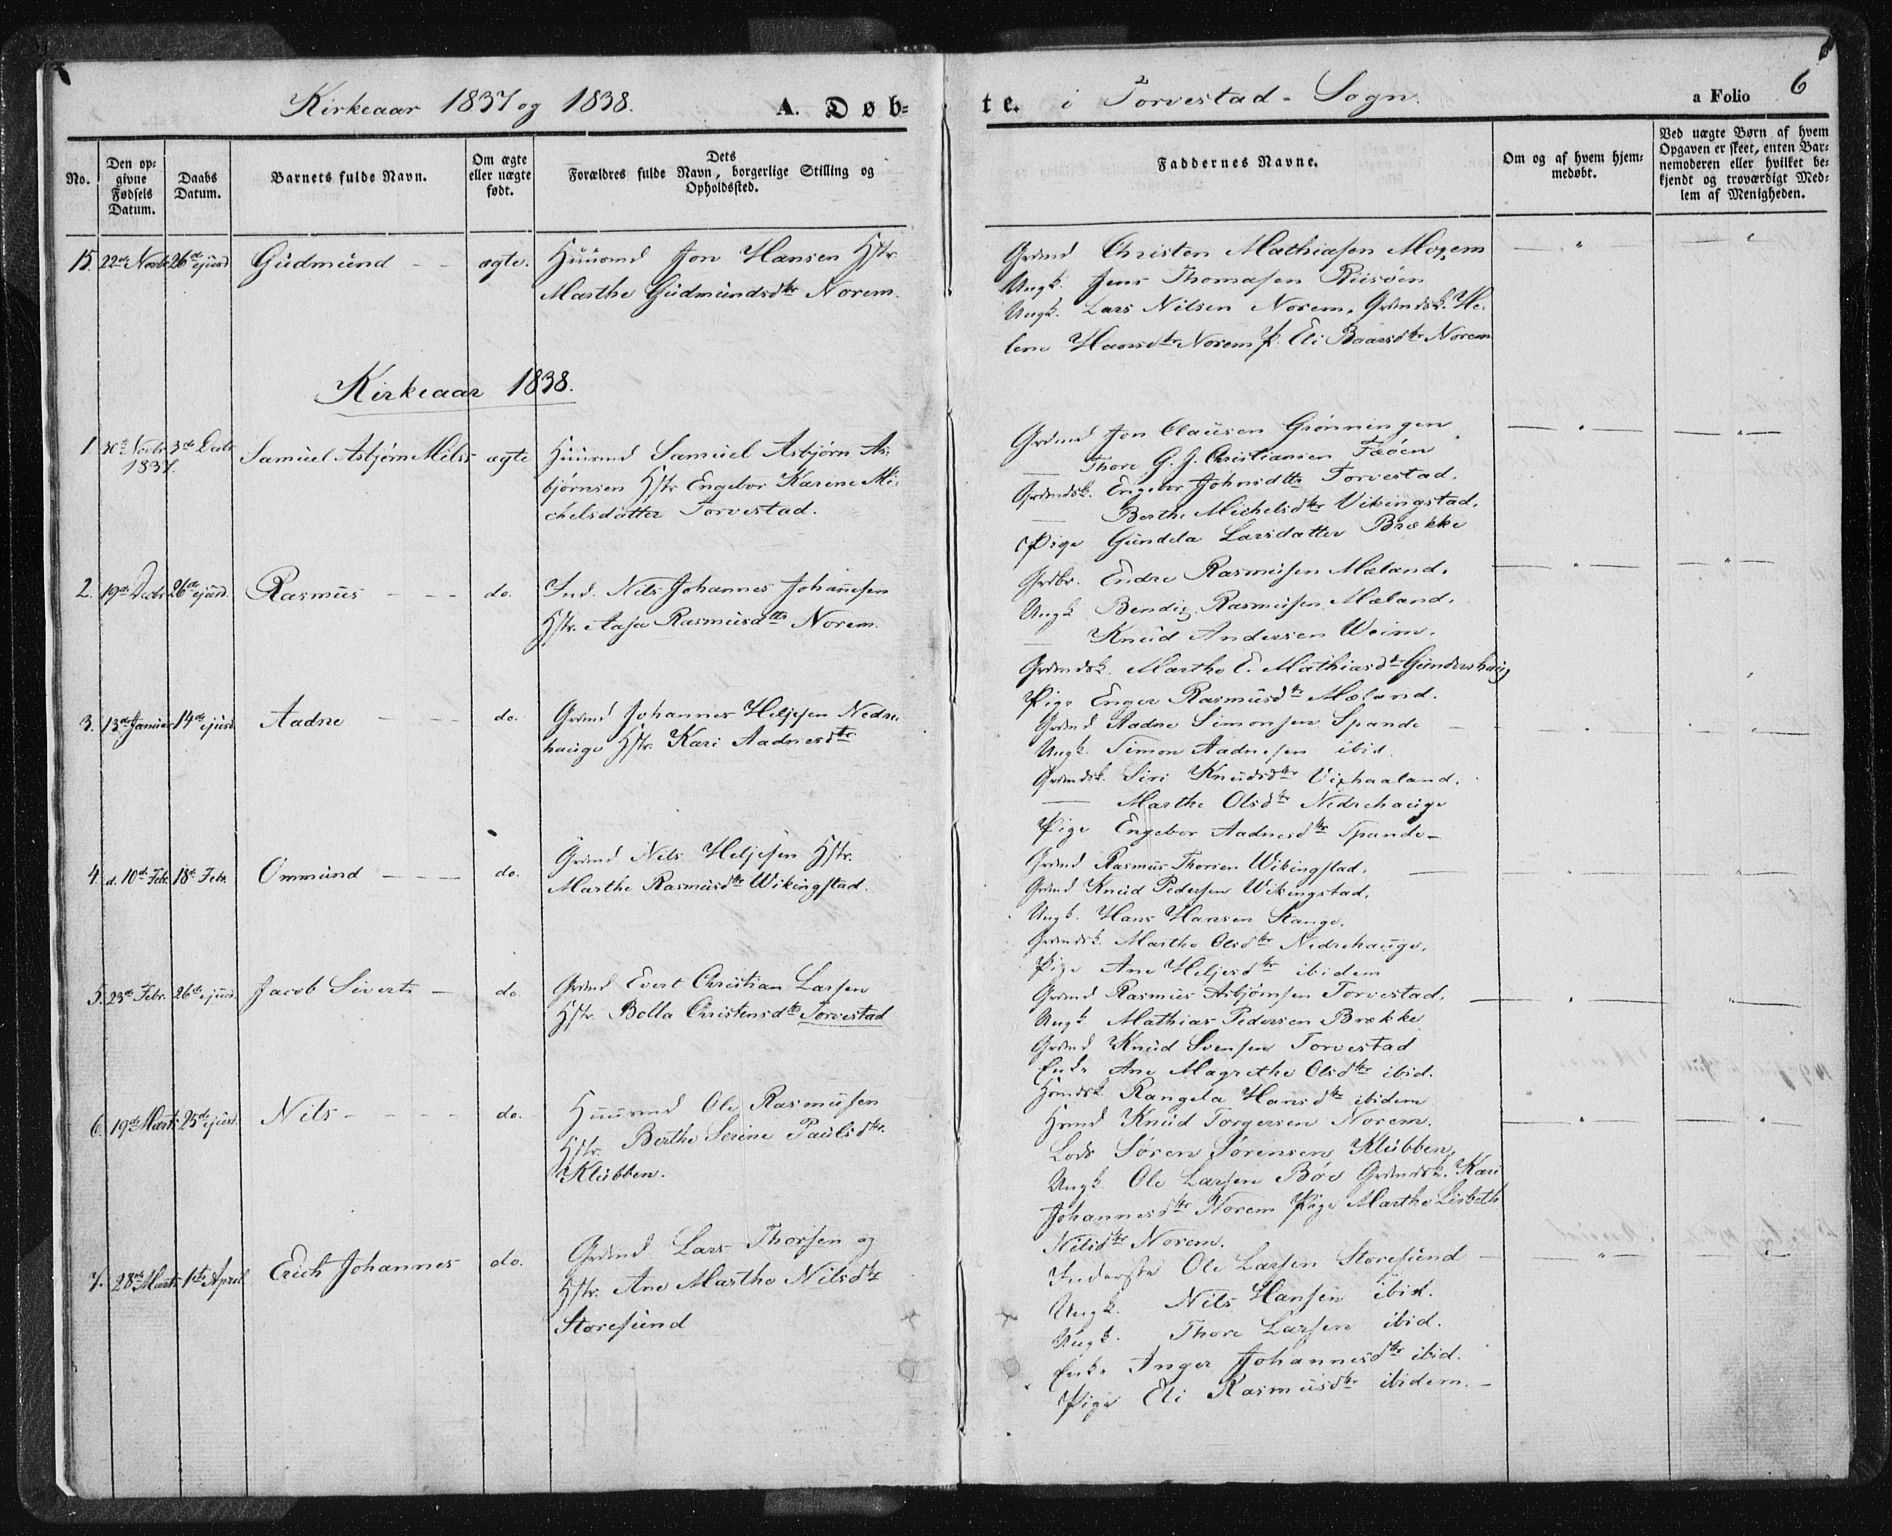 Kirkeaar 1837 og 1838.
A. Døb-
te. i Torvestad-Sogn.
a Folio 6
No.
Den op-
givne
Fødsels
Datum.
Daabs
Datum.
Barnets fulde Navn.
Om ægte
eller uægte
født.
Dets
Forældres fulde Navn, borgerlige Stilling og
Opholdssted.
Faddernes Navne.
Om og af hvem hjem-
medøbt.
Ved uægte Børn af hvem
Opgaven er skeet, enten Bar-
nemoderen eller hvilket be-
kjendt og troværdigt Med-
lem af Menigheden.
15. 22de Novbr 26de ejusd Gudmund ægte. Huusmd Jon Hansen Hstr.
Marthe Gudmundsdtr Norem.
Grdmd Christen Mathiasen
Ungk. Jens Thomasen Riisøen
Ungk. Lars Nilsen Norem, Grdmdsk. He-
lene Hansdtr Norem P. Eli Baarsdtr Norem
Kirkeaar 1838.
1 30te Novbr 3de Decbr Samuel Asbjørn ægte Huusmd Samuel Asbjørn As-
1837.
bjørnsen Hstr Engebor Karine Mi-
chelsdatter Torvestad.
Grdmd Jon Clausen Grønningen
— Thore G. J. Christiansen Føøen
Grdmdsk. Engebor Johnsdtr Torvestad.
— Berthe Michelsdtr Vikingstad.
Pige Gundela Larsdatter Brække
2. 19de Decbr 26de ejusd. Rasmus do. Ind. Nils Johannes Johanesen
Hstr. Aasa Rasmusdtr Norem.
Grdbr. Endre Rasmusen Mæland.
Ungk Bendix Rasmusen Mæland.
Knud Andersen Weim.
Grdmdsk. Marthe E. Mathiasdtr Gundershaug
Pige Enger Rasmusdtr Mæland.
3. 13de Januar 14de ejusd. Aadne do. Grdmd Johannes Heljesen Nedre-
hauge Hstr. Kari Aadnesdtr
Grdmd Aadne Simonsen Spande
Ungk. Simon Aadnesen ibid.
Grdmdsk. Siri Knudsdtr Vixhaaland.
— Marthe Olsdtr Nedrehauge
Pige Engebor Aadnesdtr Spande
4. d. 10de Febr. 18de Febr. Ommund do. Grdmd Nils Heljesen Hstr.
Marthe Rasmusdtr Wikingstad.
Grdmd Rasmus Thorsen Wikingstad.
Grdmd Knud Pedersen Wikingstad.
Ungk. Hans Hansen Stange.
Grdmdsk. Marthe Olsdtr Nedrehauge.
Pige Ane Heljesdtr ibidem
5. 23de Febr. 26de ejusd. Jacob Sivert do. Grdmd Evert Christian Larsen
Hstr. Bolla Christensdtr Torvestad
Grdmd Rasmus Asbjørnsen Torvestad.
Ungk. Mathias Pedersen Brække
Grdmd Knud Svensen Torvestad
Enke Ane Magrethe Olsdtr ibid.
Hsmdsk. Rangela Hansdtr ibidem
6. 19de Marts 25de ejusd. Nils do. Huusmd Ole Rasmusen
Hstr. Berthe Serine Paulsdtr.
Klubben.
Hsmd Knud Torgersen Norem.
Lods Søren Sørensen Klubben.
Ungk. Ole Larsen Bøe Grdmdsk. Kari
Johannesdtr Norem Pige Marthe Lisbeth
Nilsdtr Norem.
7. 28de Marts 1ste April Erich Johannes do. Grdmd Lars Thorsen og
Hstr. Ane Marthe Nilsdtr
Storesund
Inderste Ole Larsen Storesund
Ungk. Nils Hansen ibid.
Ungk. Thore Larsen ibid.
Enke Inger Johannesdtr ibid.
Pige Eli Rasmusdtr ibidem.